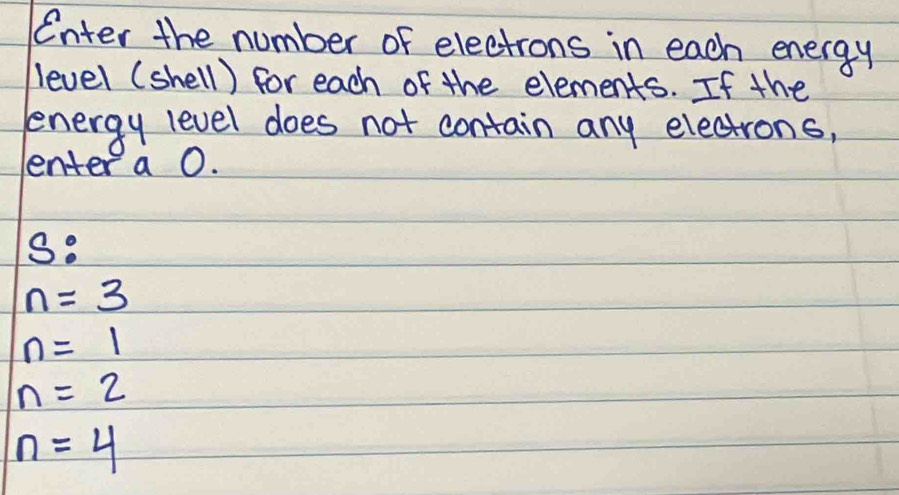 Enter the number of electrons in each energy
level (shell) for each of the elements. If the
energy level does not contain any electrons,
enter a 0.
S:
n = 3
n = 1
n = 2
n = 4